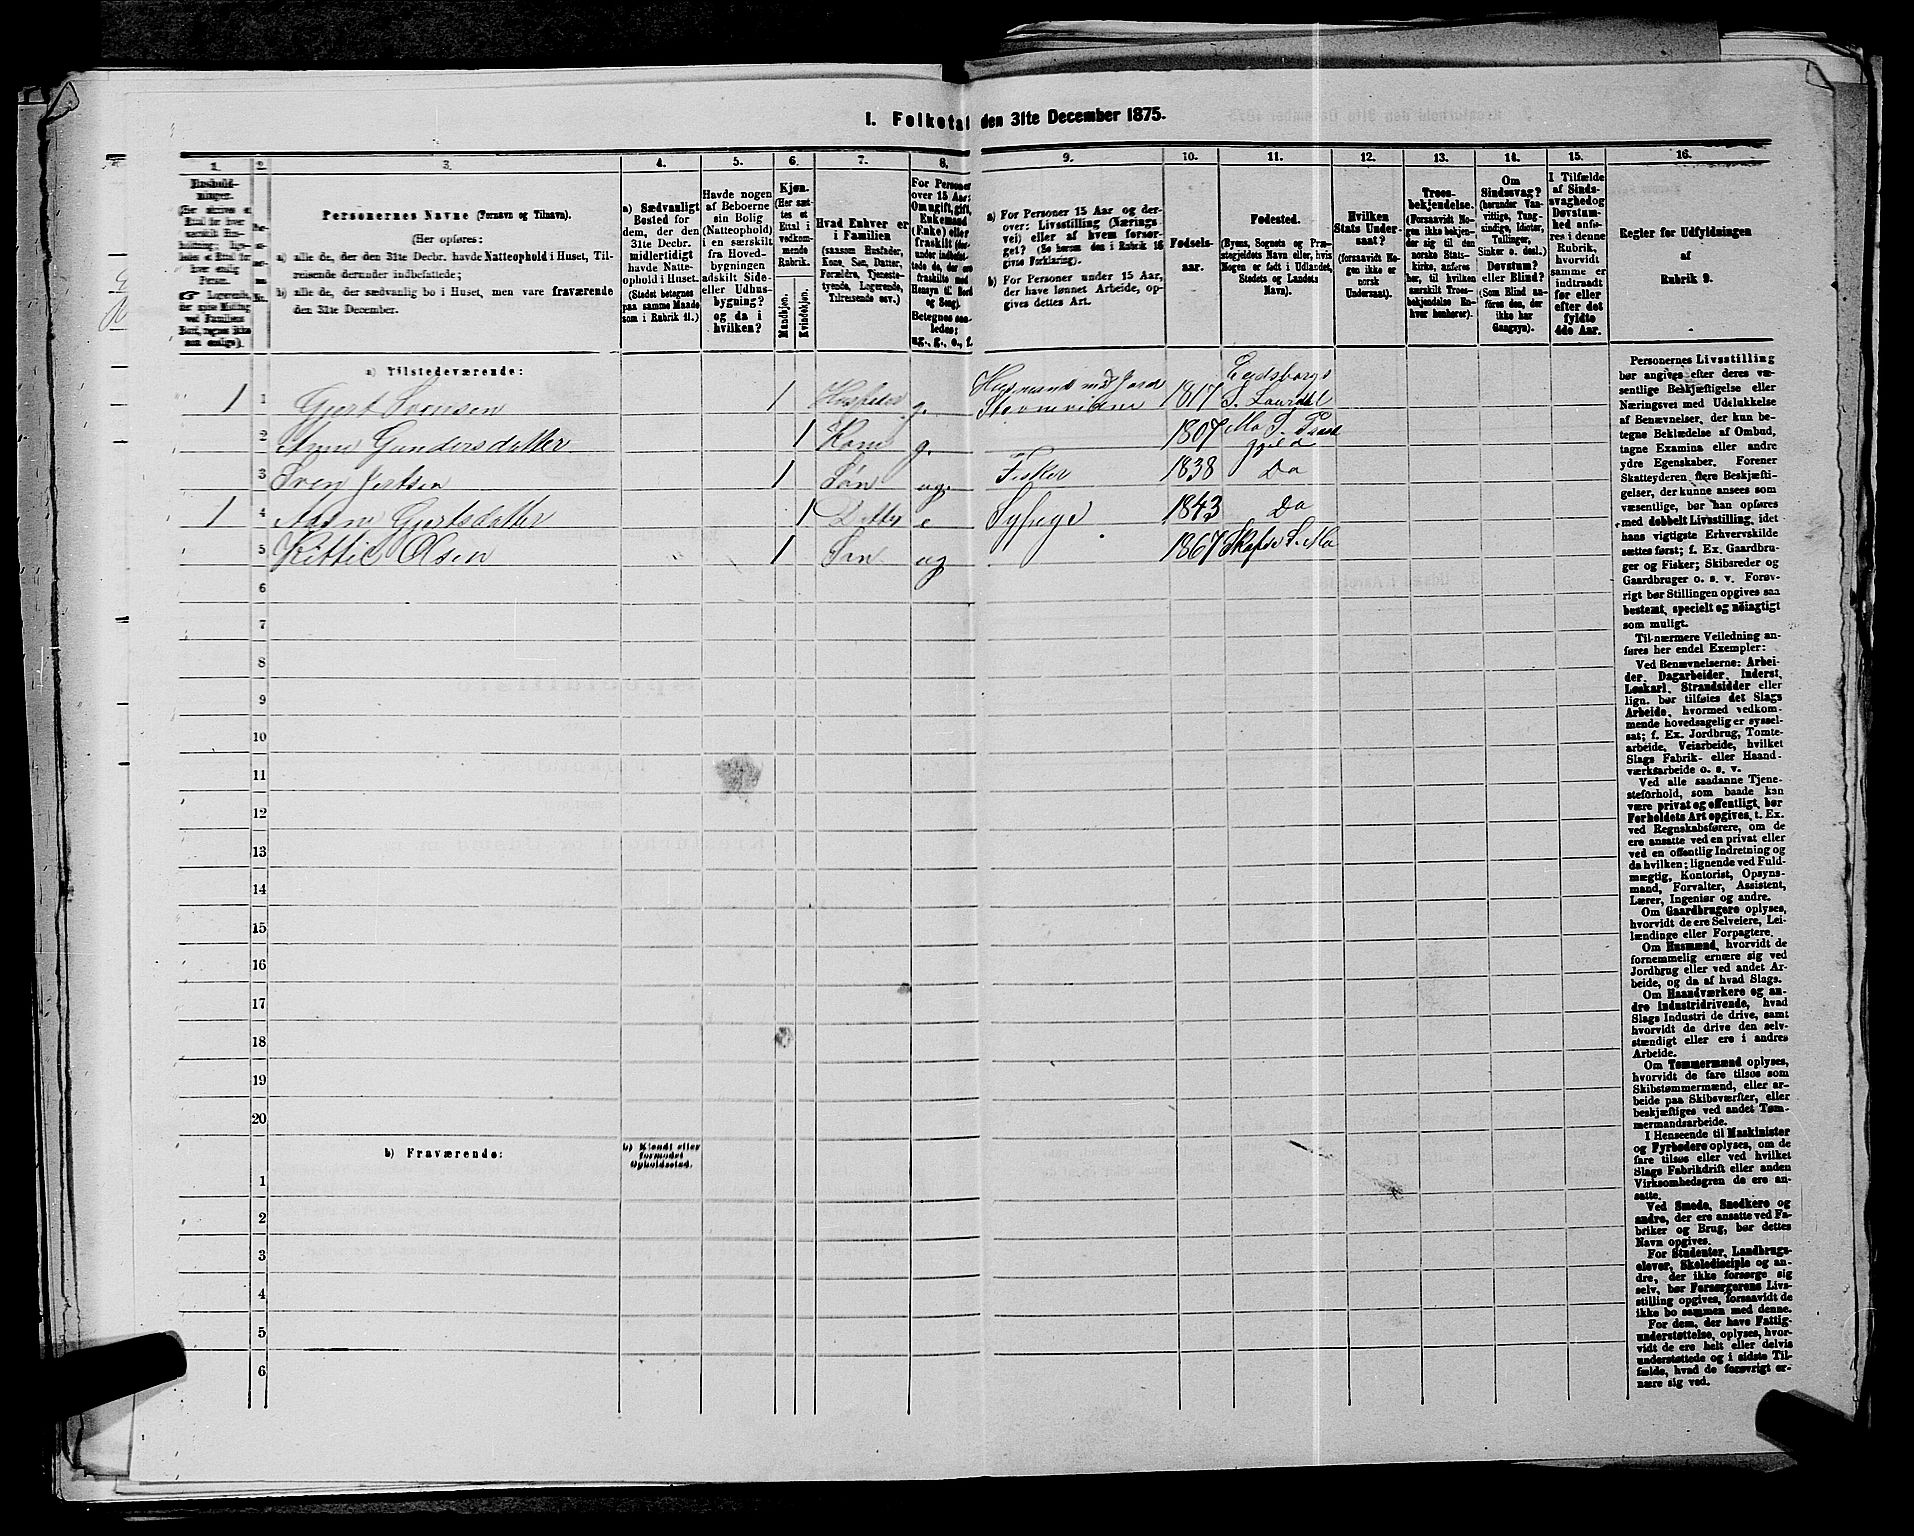 1. Folketal den 31te December 1875.
1. 2. 3. 4. 5. 6. 7. 8. 9. 10. 11. 12. 13. 14. 15. 16.
Personernes Navne (Fornavn og Tilnavn).
(Her opføres:
a) alle de, der den 31te Decbr. havde Natteophold i Huset, Tilreisende derunder indbefattede;
b) alle de, der sædvanlig bo i Huset, men vare fraværende den 31te December.
a) Sædvanligt
Bosted for
dem, der den
31te Decbr.
midlertidigt
havde Natteophold
i Huset.
(Stedet betegnes
paa samme Maade
som i Rubrik 11.)
Havde nogen
af Beboerne
sin Bolig
(Natteophold)
i en særskilt
fra Hovedbygningen
adskilt Side-
eller Udhusbygning?
og da i
hvilken?
Kjøn.
(Her sættes
et
Ettal i
vedkommende
Rubrik.
Mandkjøn.
Kvindekjøn.
Hvad Enhver er
i Familien
(saasom Husfader,
Kone, Søn, Datter,
Forældre, Tjenestetyende,
Logerende,
Tilreisende osv.)
For Personer
over 15 Aar:
Om ugift, gift,
Enkemand
(Enke) eller
fraskilt
Betegnes saaledes:
ug., g., e., f.
a) For Personer 15 Aar og derover:
Livsstilling (Næringsvei)
eller af hvem forsørget?
(Se herom den i Rubrik 16
givne Forklaring).
b) For Personer under 15 Aar,
der have lønnet Arbeide, opgives
dettes Art.
Fødselsaar.
Fødested.
(Byens, Sognets og Præstegjeldets
Navn eller, hvis
Nogen er født i Udlandet,
Stedets og Landets
Navn).
Hvilken
Stats Undersaat?
(forsaavidt Nogen
ikke er
norsk
Undersaat).
Troesbekjendelse.
(Forsaavidt Nogen
ikke bekjender
sig til den
norske Statskirke,
anføres
her, til hvilken
særskilt Troesbekjendelse
Enhver
henhører).
Om
Sindssvag?
(herunder Vanvittige,
Tungsindige,
Idioter,
Tullinger,
Sinker o. desl.).
Døvstum?
eller Blind?
(Som Blind anføres
den, der
ikke har
Gangsyn).
I Tilfælde
af Sindssvaghed
og
Døvstumhed
anføres
i denne
Rubrik,
hvorvidt
samme er
indtraadt
før eller
efter det
fyldte
4de Aar.
Regler for Udfyldningen
af
Rubrik 9.
a) Tilstedeværende:
1 1 Gjert Svensen 1 Husfader g. Husmand med Jord 1817
2 Anne Gundersdatter 1 Kone g. 1807
3 Sven Jertsen 1 Søn ug. Fisker 1838 Do
1 4 Gjertsdatter 1 Datter e Sypige 1843 Do
5 Kittil Olsen 1 Søn ug 1867 Skafse S. Mo
6
7
8
9
10
11
12
13
14
15
16
17
18
19
20
b) Fraværende:
b) Kjendt eller
formodet
Opholdssted.
1
2
3
4
5
6
Personernes Livsstilling
bør angives efter deres væsentlige
Beskjæftigelse eller
Næringsvei med Udelukkelse
af Benævnelser, der kun betegne
Beklædelse af Ombud,
tagne Examina eller andre
ydre Egenskaber. Forener
Skatteyderen flere Beskjæftigelser,
der kunne ansees som
væsentlige, bør han opføres
med dobbelt Livsstilling, idet
hans vigtigste Erhvervskilde
sættes først; f. Ex. Gaardbruger
og Fisker; Skibsreder og
Gaardbruger o. s. v. Forøvrigt
bør Stillingen opgives saa
bestemt, specielt og nøiagtigt
som muligt.
Til nærmere Veiledning anføres
her endel Exempler:
Ved Benævnelserne: Arbeider,
Dagarbeider, Inderst,
Løskarl, Strandsidder eller
lign. bør tilføies det Slags
Arbeide, hvormed vedkommende
hovedsagelig er sysselsat;
f. Ex. Jordbrug, Tomtearbeide,
Veiarbeide, hvilket
Slags Fabrik- eller Haandværksarbeide
o. s. v.
Ved alle saadanne Tjenesteforhold,
som baade kan
være privat og offentligt, bør
Forholdets Art opgives, t. Ex.
ved Regnskabsførere, om de
ere ansatte ved en privat eller
ved en offentlig Indretning og
da hvilken; lignende ved Fuldmægtig,
Kontorist, Opsynsmand,
Forvalter, Assistent,
Lærer, Ingeniør og andre.
Om Gaardbrugere oplyses,
hvorvidt de ere Selveiere, Leilændinge
eller Forpagtere.
Om Husmænd, hvorvidt de
fornemmelig ernære sig ved
Jordbrug eller ved andet Arbeide,
og da af hvad Slags.
Om Haandværkere og andre
Industridrivende, hvad
Slags Industri de drive, samt
hvorvidt de drive den selvstændigt
eller ere i andres
Arbeide.
Om Tømmermænd oplyses,
hvorvidt de fare tilsøs som
Skibstømmermænd, eller arbeide
paa Skibsværfter, eller
beskjæftiges ved andet Tømmermandsarbeide.
I Henseende til Maskinister
og Fyrbødere oplyses, om de
fare tilsøs eller ved hvilket
Slags Fabrikdrift eller anden
Virksomhedsgren de ere ansatte.
Ved Smede, Snedkere og
andre, der ere ansatte ved Fabriker
og Brug, bør dettes
Navn opgives.
For Studenter, Landbrugselever,
Skoledisciple og andre,
der ikke forsørge sig
selv, bør Forsørgerens Livsstilling
opgives, forsaavidt de
ikke bo sammen med denne.
For dem, der have Fattigunderstøttelse,
oplyses, hvorvidt
de ere helt eller delvis
understøttede og i sidste Tilfælde,
hvad de forøvrigt ernære
sig ved.